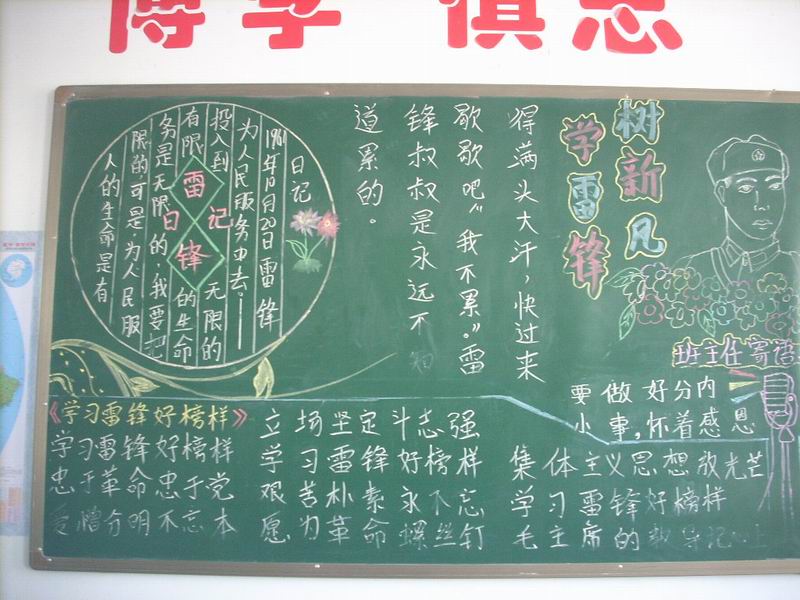 博学
学雷锋
树新凡
人的生命是有
限的,可是为人民服
务是无限的,我要把
有限的生命
投入到无限的
为人民服务中去。——
1961年10月20日雷锋
日记
雷锋
日记
得满头大汗,快过来
歇歇吧“我不累。”雷
锋叔叔是永远不知
道累的。
班主任寄语
要做好分内
小事,怀着感恩
《学习雷锋好榜样》
学习雷锋好榜样
忠于革命忠于党
爱憎分明不忘本
立场坚定斗志强
学习雷锋好榜样
艰苦朴素永不忘
愿为革命螺丝钉
集体主义思想放光芒
学习雷锋好榜样
毛主席的教导记心上